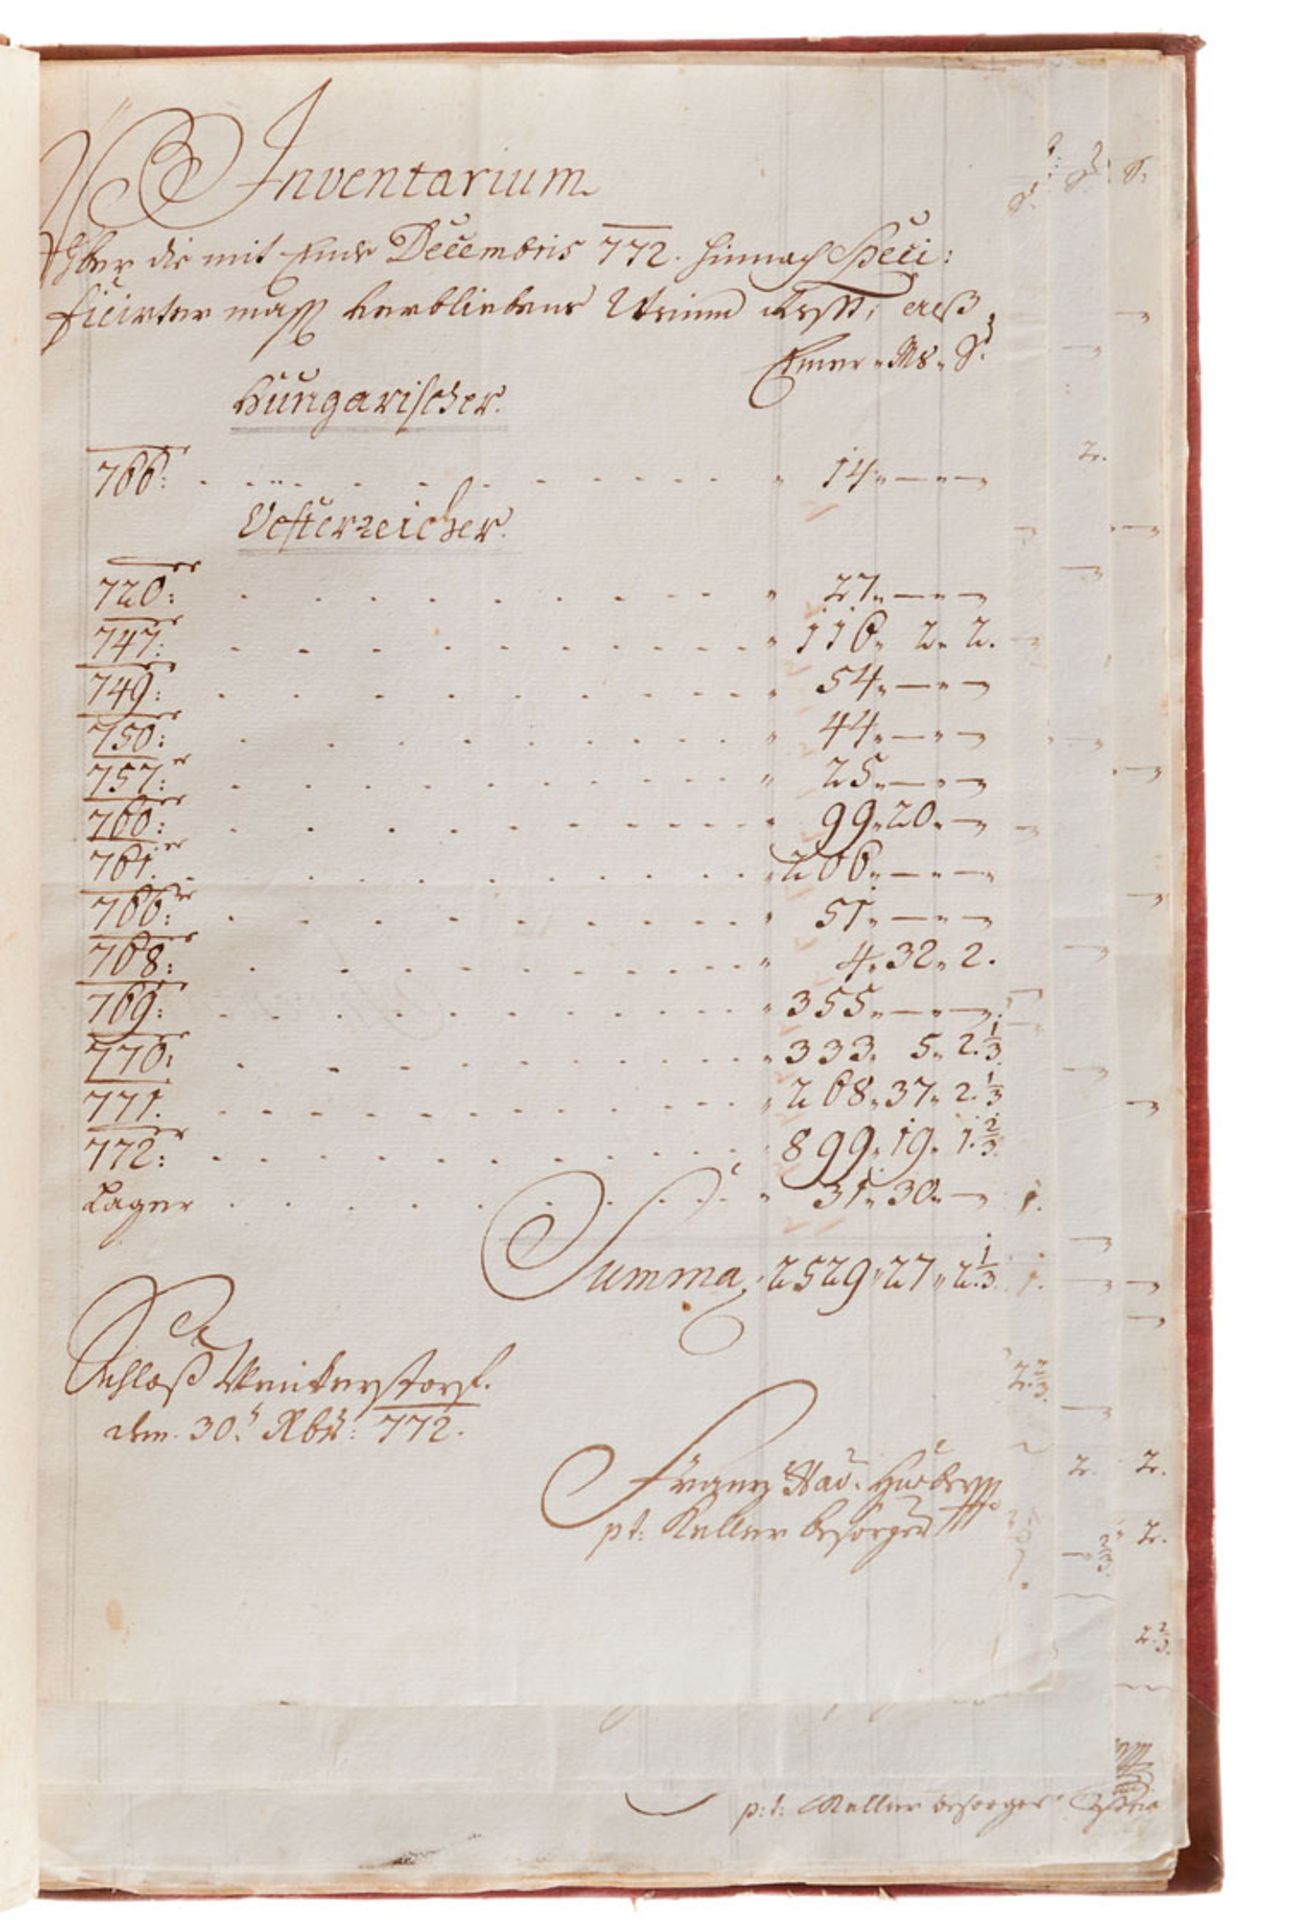 Inventarium
Über die mit Ende Decembris 772. hinnach Speci:
ficirter mass verbliebene Weinn Rest, als
Emer „ Ms „ S:
Hungarischer.
766: . . . . . . . . . . „ 14„ — „ —
Oesterreicher.
720: . . . . . . . . . . „ 27„ — „ —
747: . . . . . . . . . . „ 116„ 2„ 2.
749: . . . . . . . . . . „ 54„ — „ —
750: . . . . . . . . . . „ 44„ — „ —
757: . . . . . . . . . . „ 25„ — „ —
760: . . . . . . . . . . „ 99„ 20„ —
761. . . . . . . . . . . „ 206„ — „ —
766: . . . . . . . . . . „ 51„ — „ —
768: . . . . . . . . . . „ 4„ 32„ 2.
769: . . . . . . . . . . „ 355„ — „ —
770: . . . . . . . . . . „ 333„ 5„ 2. 1/3
771. . . . . . . . . . . „ 268„ 37„ 2. 1/3
772: . . . . . . . . . . 899„ 19„ 1. 2/3
Lager . . . . . . . . . . „ 31„ 30„ —
Summa „ 2529„ 27„ 2. 1/3
Schloß
den 30. Xbr: 772.
Frantz Xav: Huber
pt: Keller besorger
p: t: Keller besorger